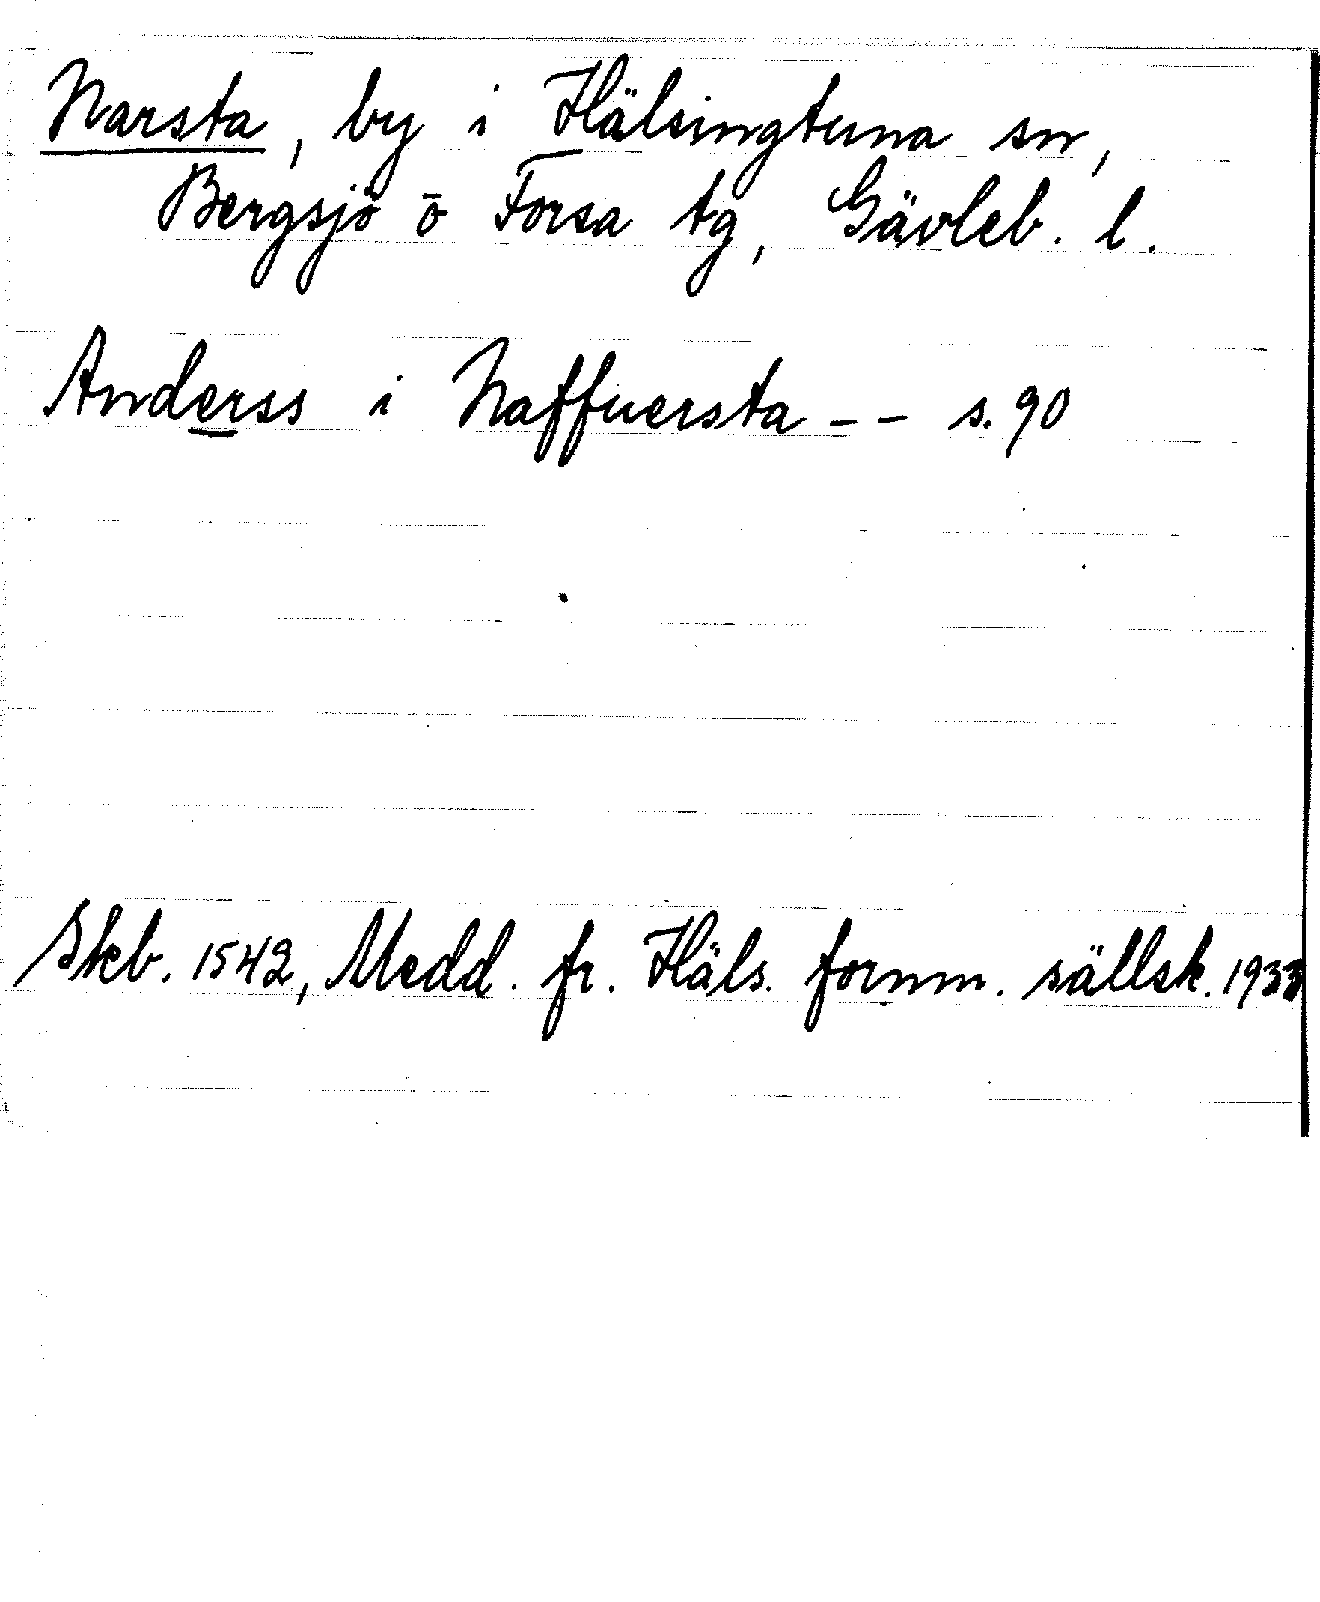 Narsta, by i Hälsingtuna sn,
Bergsjö o Forsa tg, Gävleb. l.
Anderss i Naffuersta -- s. 90
Skb. 1542, Medd. fr. Häls. fornm. sällsk. 1933